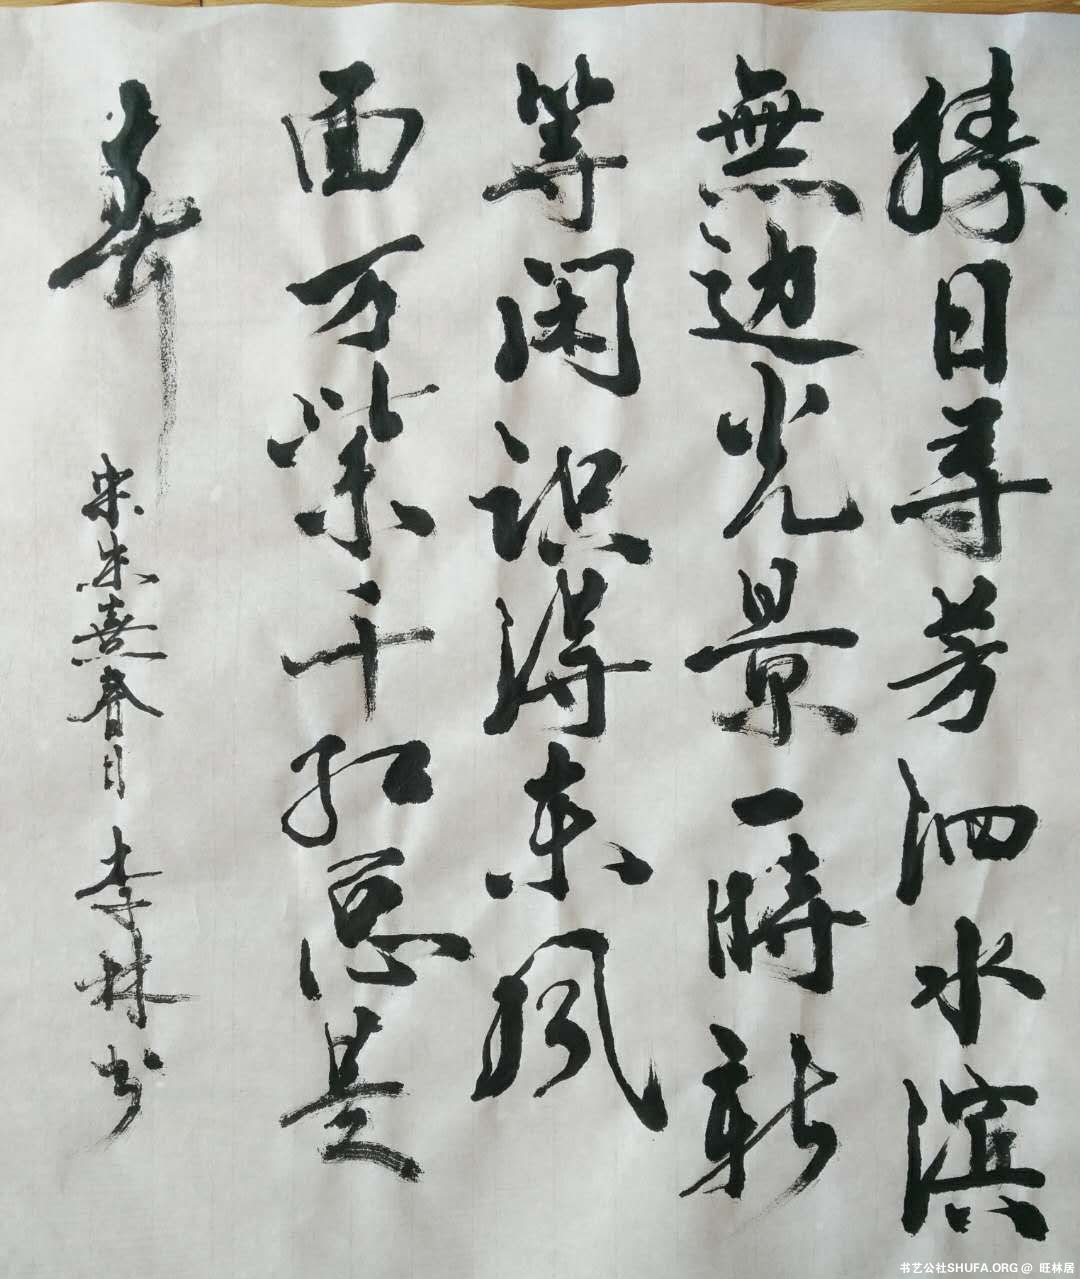 勝日尋芳泗水滨
無边光景一時新
等闲识得东風
面万紫千红总是
春
宋朱熹春日 李林书
书艺公社SHUFA.ORG @ 旺林居